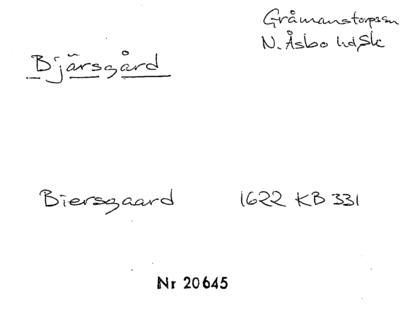 Gråmanstorpssn
N. Åsbo hd, Sk
Bjärsgård
Biersgaard 1622 KB 331
Nr 20645